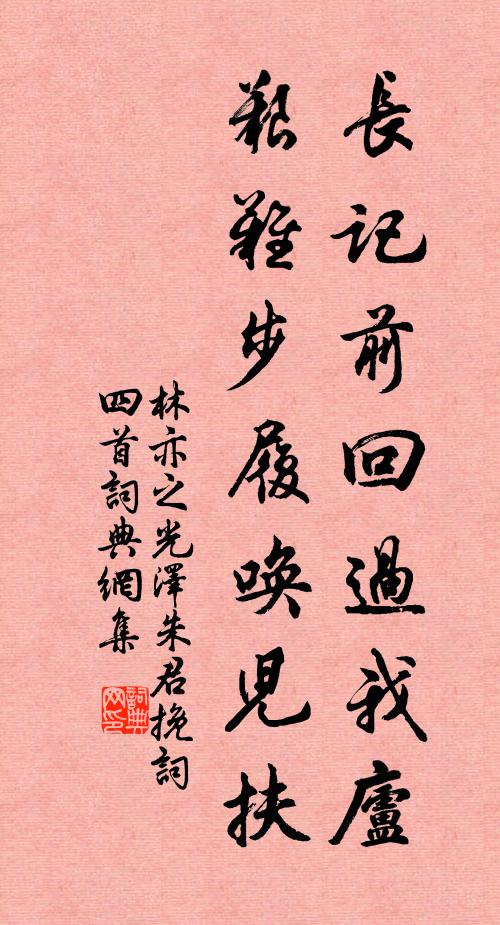 長記前回過我廬
艱難步履喚児扶
林亦之光澤朱君挽詞
四首詞典網集
詞典網印